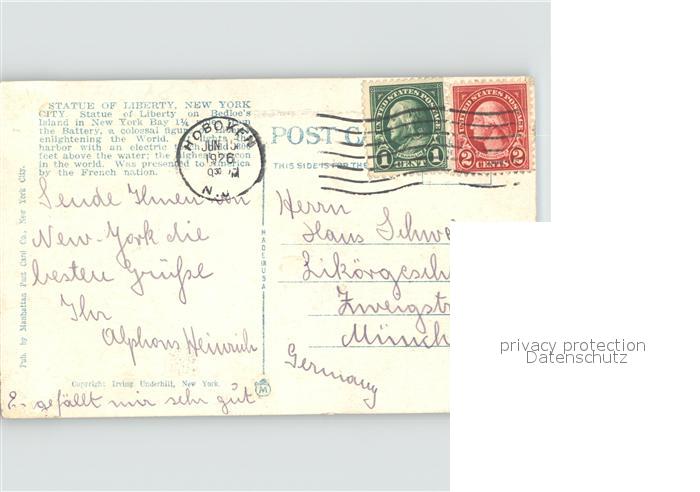 STATUE OF LIBERTY, NEW YORK
CITY. Statue of Liberty on Bedloe's
Island in New York Bay 1¾
the Battery, a colossal
enlightening the World.
harbor with an electric
feet above the water; the
in the world. Was presented to America
by the French nation.
HOBOKEN
JUN
1926
9 30
N.J.
POST
THIS SIDE IS FOR THE
UNITED STATES POSTAGE
1 CENT 1
UNITED STATES POSTAGE
2 CENTS 2
Pub. by Manhattan Post Card Co., New York City.
Sende Ihnen von
New-York die
besten Grüße
Ihr
Alphons Heinrich
E. gefällt mir sehr gut
Copyright Irving Underhill, New York.
MADE IN USA
M
Herrn
Hans Schwei
Likörgesch
Zweigstr
Münch
Germany
privacy protection
Datenschutz